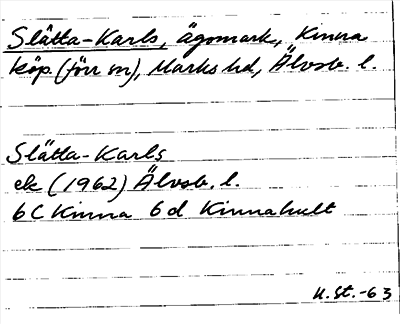 Slätta-Karls, ägomark, Kinna
köp. (förr sn), Marks hd, Älvsb. l.
Slätta-Karls
ek (1962) Älvsb. l.
6C Kinna 6d Kinnahult
U.St.-63